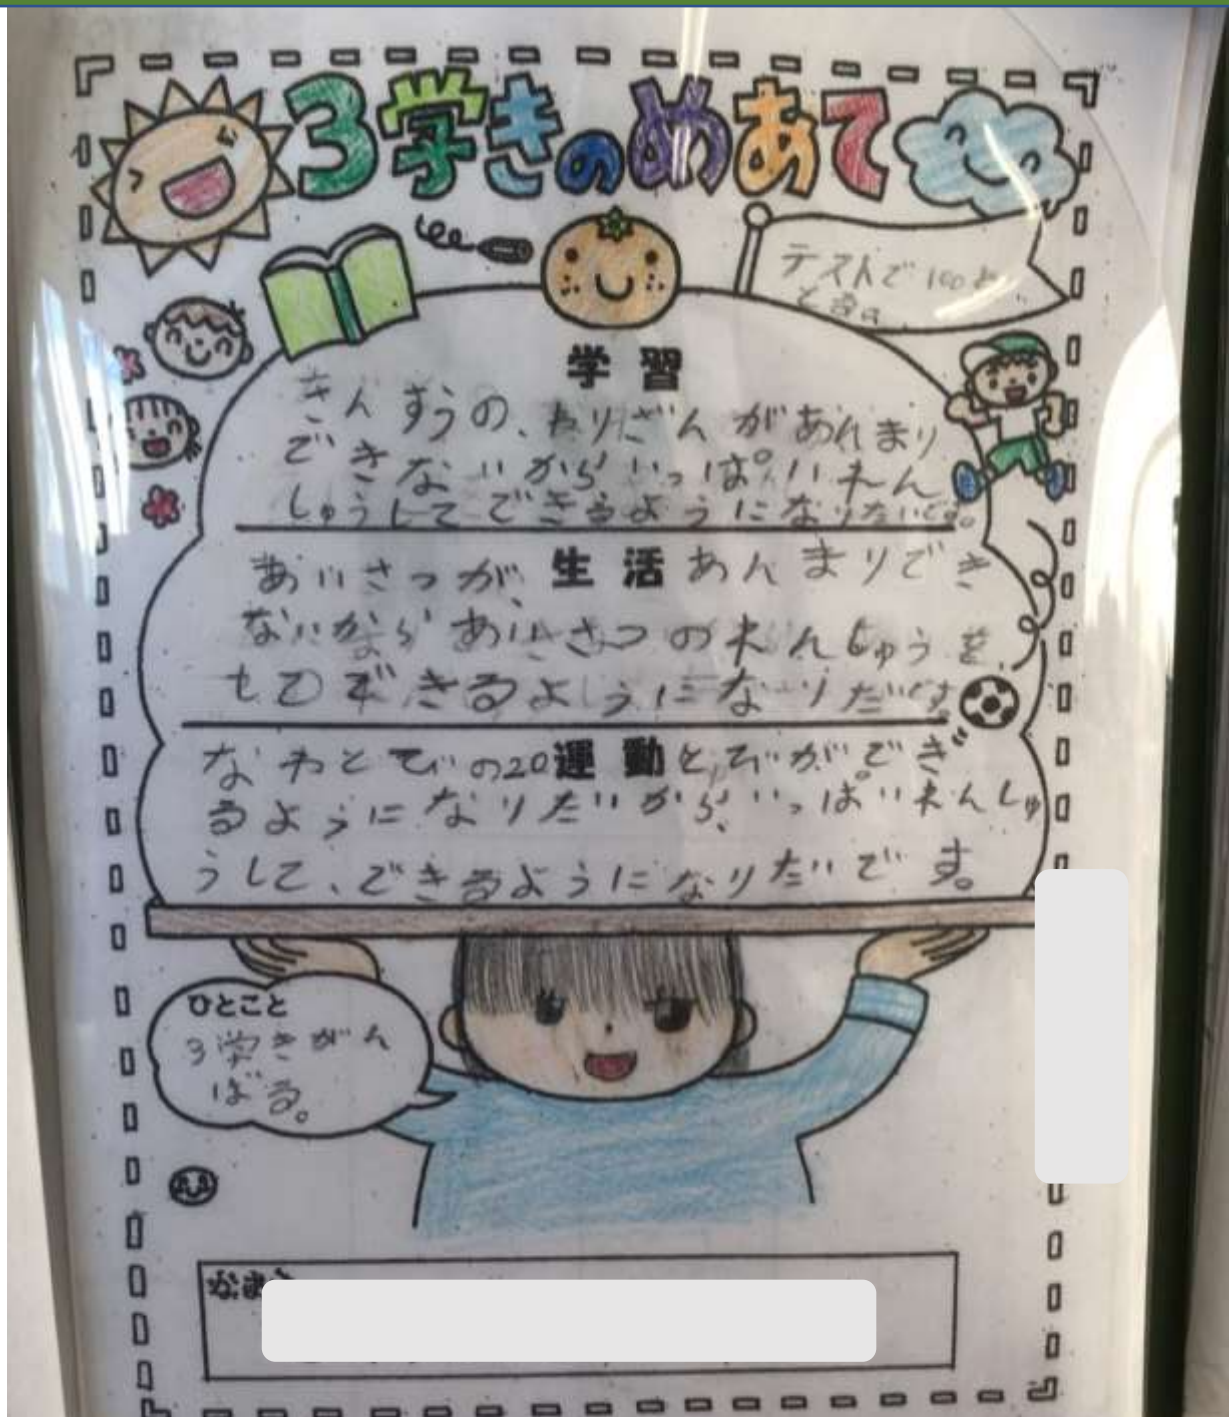 3学きのめあて
テストで100
学習
さんすうの、わりざんがあんまり
できないからいっぱいれん
しゅうしてできるようになりたいです。
生活
あいさつが、あんまりでき
ないからあいさつのれんしゅうを、
してできるようになりたいです。
運動
なわとびの20とびができ
るようになりたいから、いっぱいれんしゅ
うして、できるようになりたいです。
ひとこと
3学きがん
ばる。
なまえ